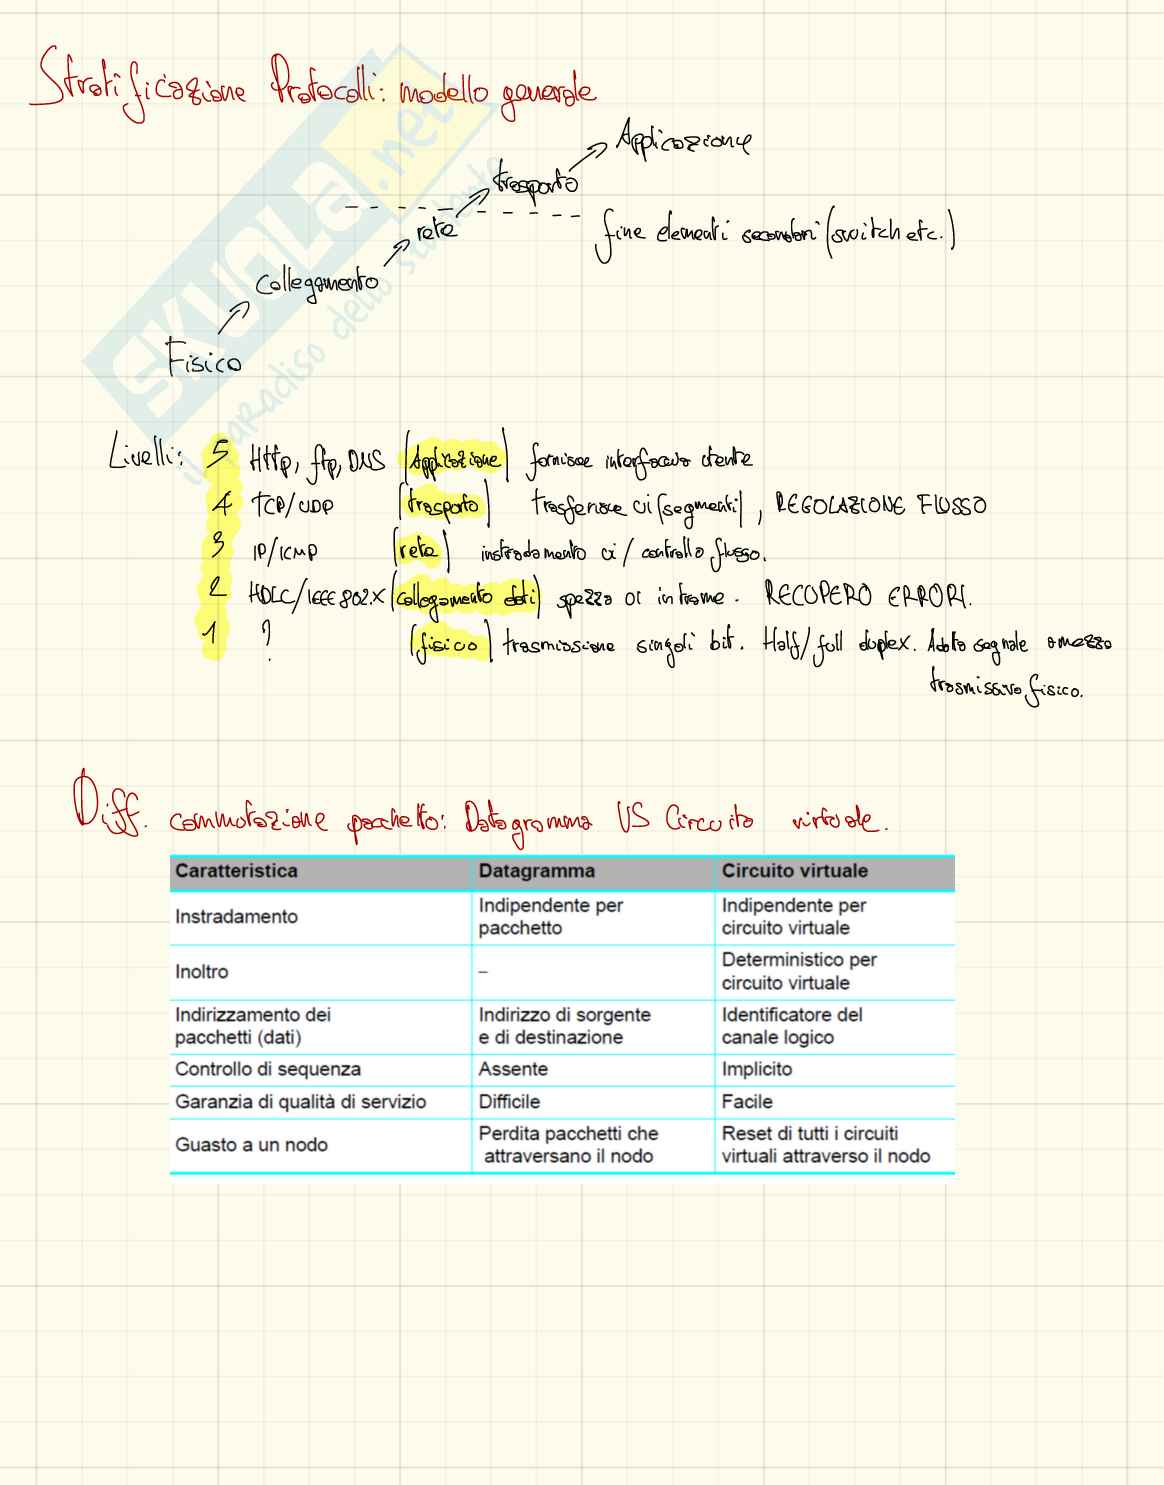 Stratificazione Protocolli: modello generale
Applicazione
trasporto
rete
fine elementi secondari (switch etc.)
Collegamento
Fisico
SKUOLA.net
il paradiso dello studente
Livelli: 5 Http, ftp, DNS (Applicazione) fornisce interfaccia utente
4 TCP/UDP (trasporto) trasferisce ui (segmenti), REGOLAZIONE FLUSSO
3 IP/ICMP (rete) instradamento ui / controllo flusso.
2 HDLC/IEEE 802.X (collegamento dati) spezza ui in trame. RECUPERO ERRORI.
1 ? (fisico) trasmissione singoli bit. Half/full duplex. Adatta segnale a mezzo
trasmissivo fisico.
Diff. commutazione pacchetto: Datagramma VS Circuito virtuale.
Caratteristica Datagramma Circuito virtuale
Instradamento Indipendente per pacchetto Indipendente per circuito virtuale
Inoltro – Deterministico per circuito virtuale
Indirizzamento dei pacchetti (dati) Indirizzo di sorgente e di destinazione Identificatore del canale logico
Controllo di sequenza Assente Implicito
Garanzia di qualità di servizio Difficile Facile
Guasto a un nodo Perdita pacchetti che attraversano il nodo Reset di tutti i circuiti virtuali attraverso il nodo